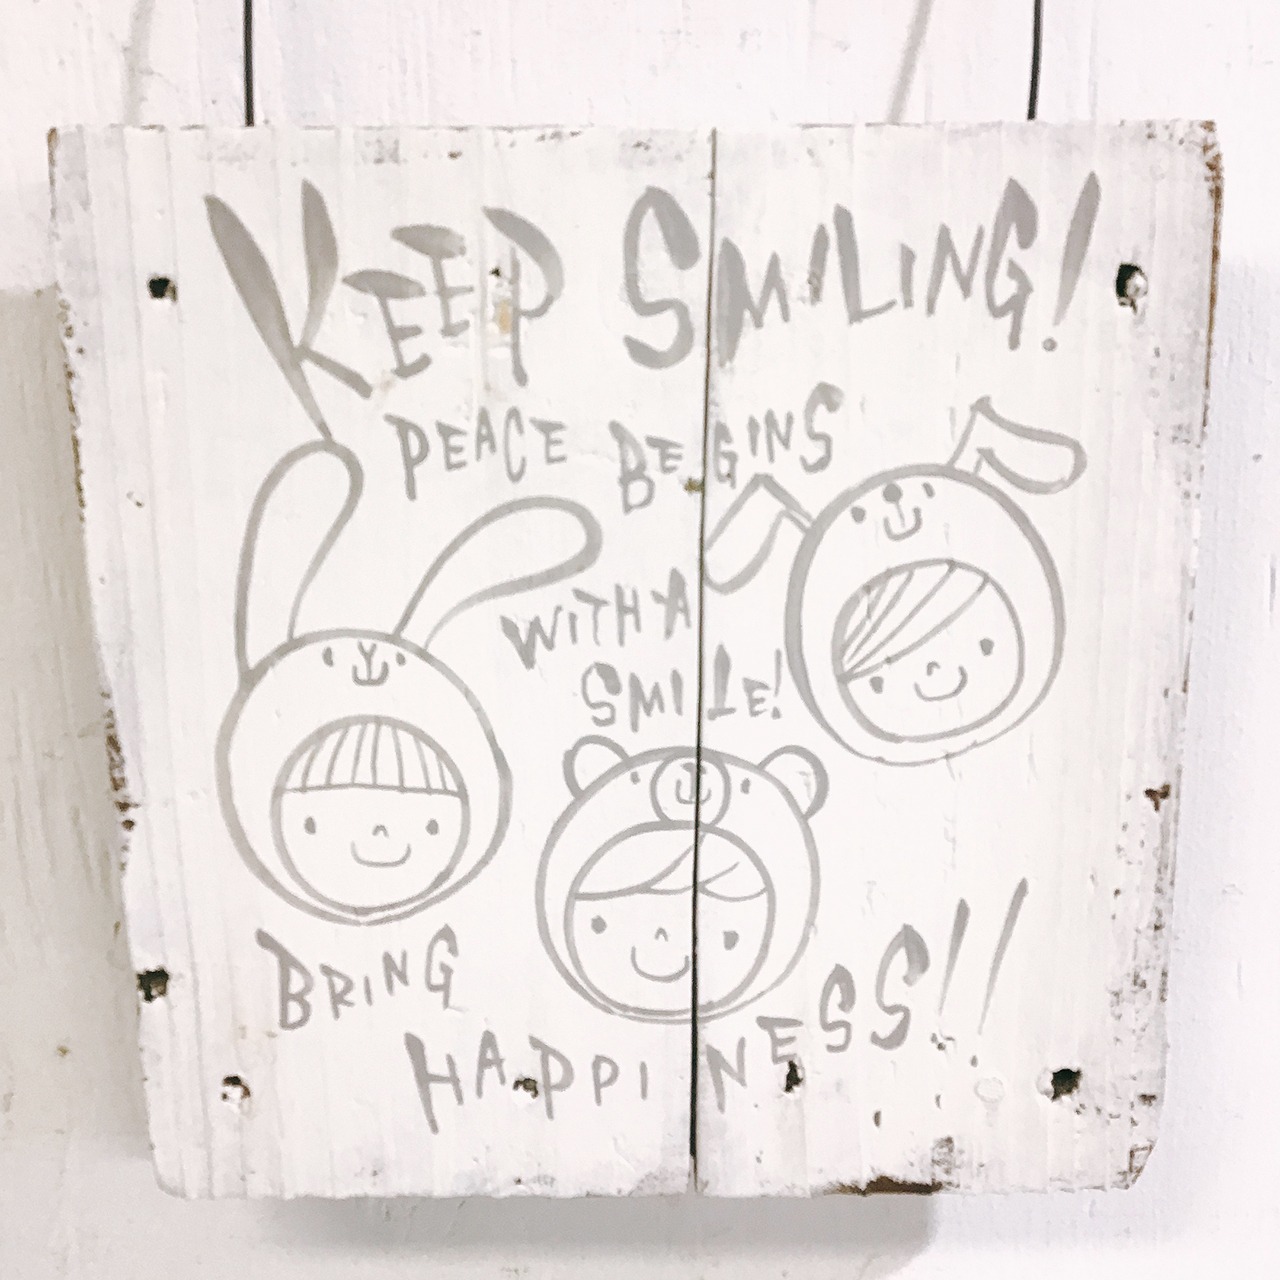 KEEP SMILING!
PEACE BEGINS
WITH A
SMILE!
BRING
HAPPINESS!!